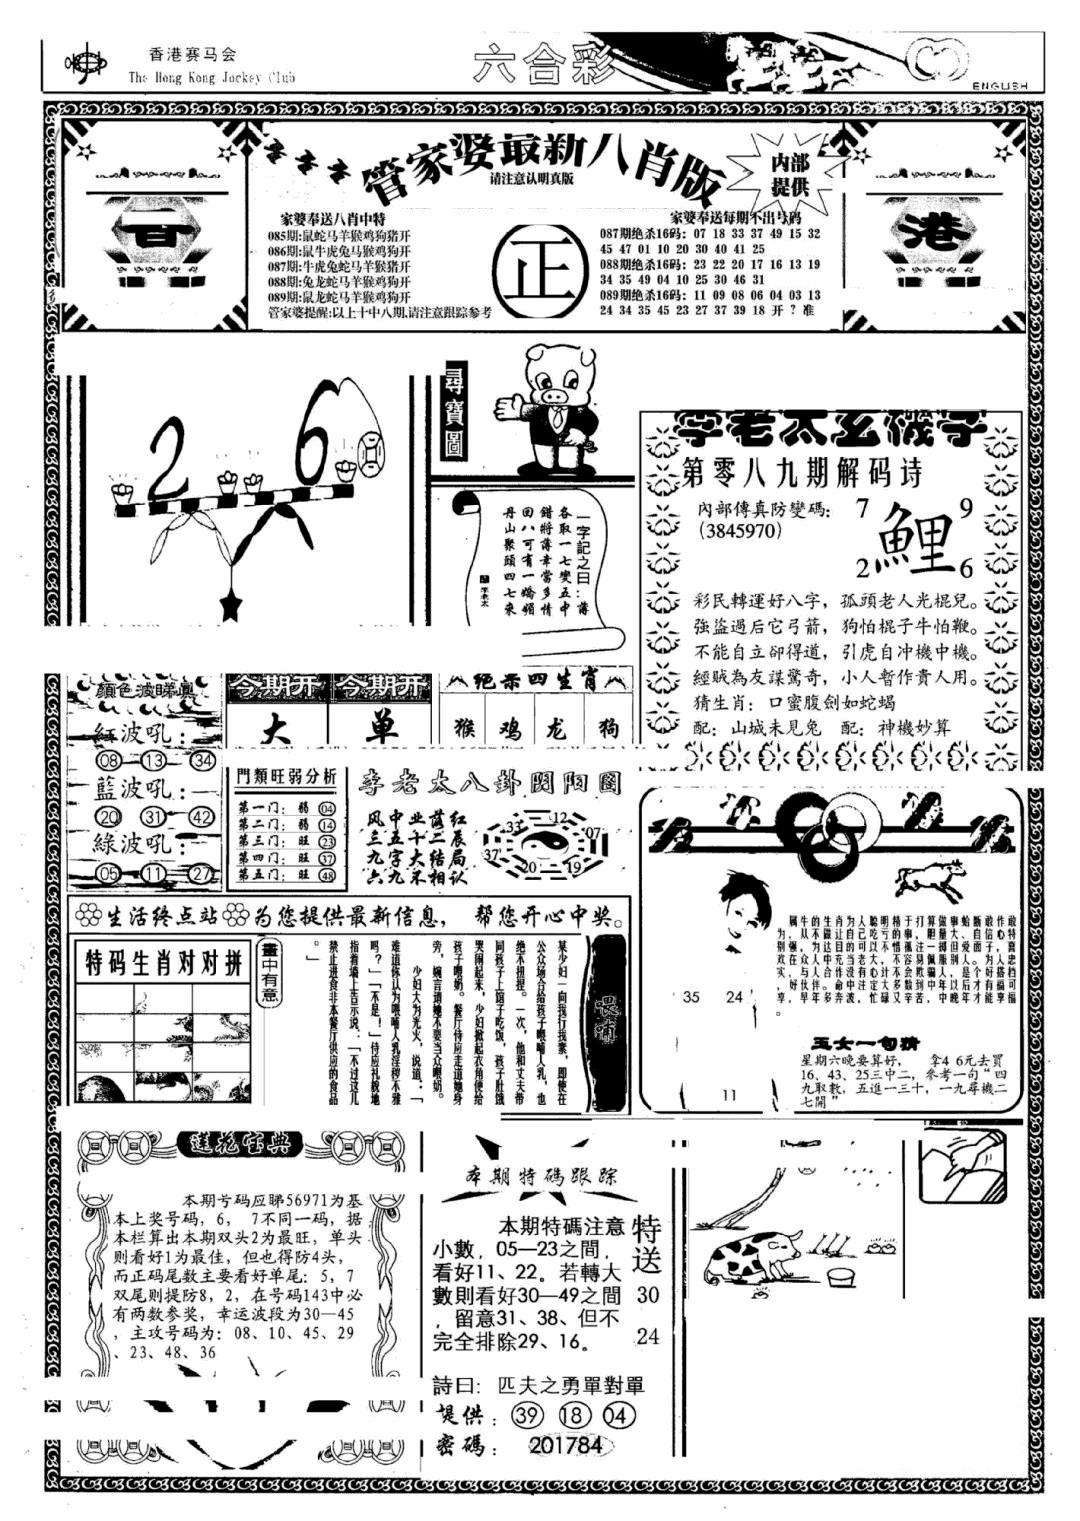 香港赛马会
The Hong Kong Jockey Club
六合彩
ENGLISH
管家婆最新八肖版
请注意认明真版
内部
提供
港
家婆奉送八肖中特
085期:鼠蛇马羊猴鸡狗猪开
086期:鼠牛虎兔马猴鸡狗开
087期:牛虎兔蛇马羊猴猪开
088期:兔龙蛇马羊猴鸡狗开
089期:鼠龙蛇马羊猴鸡狗开
管家婆提醒:以上十中八期,请注意跟踪参考
正
家婆奉送每期不出号码
087期绝杀16码: 07 18 33 37 49 15 32
45 47 01 10 20 30 40 41 25
088期绝杀16码: 23 22 20 17 16 13 19
34 35 49 04 10 25 30 46 31
089期绝杀16码: 11 09 08 06 04 03 13
24 34 35 45 23 27 37 39 18 开?准
26
尋寶圖
一字記之曰:薄
各取一七變五中
錯將薄幸當多情
回八可有一嬌媚
丹山聚頭四七來
李老太
李老太玄機字
第零八九期解码诗
內部傳真防變碼:
(3845970)
7
9
鯉
2
6
彩民轉運好八字，孤頭老人光棍兒。
強盜過后它弓箭，狗怕棍子牛怕鞭。
不能自立卻得道，引虎自冲機中機。
經賊為友謀驚奇，小人暫作貴人用。
猜生肖：口蜜腹劍如蛇蝎
配：山城未見兔 配：神機妙算
顏色波睇真
紅波吼：
08 13 34
藍波吼：
20 31 42
綠波吼：
05 11 27
今期开
大
今期开
单
绝杀四生肖
猴 鸡 龙 狗
門類旺弱分析
第一门：弱 04
第二门：弱 14
第三门：旺 23
第四门：旺 37
第五门：旺 48
李老太八卦阴阳圖
风中业落红
三五十二辰
九字大结局
六九不相认
33 12 07
37
20 19
生活终点站 为您提供最新信息， 帮您开心中奖。
特码生肖对对拼
畫中有意
喂哺
某少妇一向我行我素，即使在
公众场合给孩子喂哺人乳，也
绝不扭捏。一次，他和丈夫带
同孩子上馆子吃饭，孩子肚饿
哭闹起来，少妇掀起衣角便给
孩子喂奶。餐厅侍应走道她身
旁，婉言请她不要当众喂奶。
少妇大为光火，说道：「
难道你认为喂哺人乳淫秽不雅
吗？」「不是！」侍应礼貌地
指着墙上告示说：「不过这儿
禁止进食非本餐厅供应的食品
。」
35 24
11
属牛的生肖为人聪明精于打算做事蛤断敢作敢
为，从不做让自己吃亏的事，胆量大、自信心特
别强，为达目的可以不惜孤注一掷但爱面子，喜
欢在众人中充当老大，不容易佩服别人。为人忠
实，与人合作没有心计不会欺骗人，是个好搭档
，好伙伴。命中注定大多数到中年以后才有福可
享，早年多奔波，忙碌又辛苦，中晚年才能享福
。
玉女一句猜
星期六晚要算好， 拿4 6元去買
16、43、25三中二，參考一句“四
九取數，五進一三十，一九尋機二
七開”
莲花宝典
本期号码应睇56971为基
本上奖号码，6， 7不同一码，据
本栏算出本期双头2为最旺，单头
则看好1为最佳，但也得防4头，
而正码尾数主要看好单尾：5，7
双尾则提防8，2，在号码143中必
有两数参奖，幸运波段为30—45
，主攻号码为：08、10、45、29
、23、48、36
本期特碼跟踪
本期特碼注意
小數，05—23之間，
看好11、22。若轉大
數則看好30—49之間
，留意31、38、但不
完全排除29、16。
特送
30
24
詩曰: 匹夫之勇單對單
提供： 39 18 04
密碼： 201784